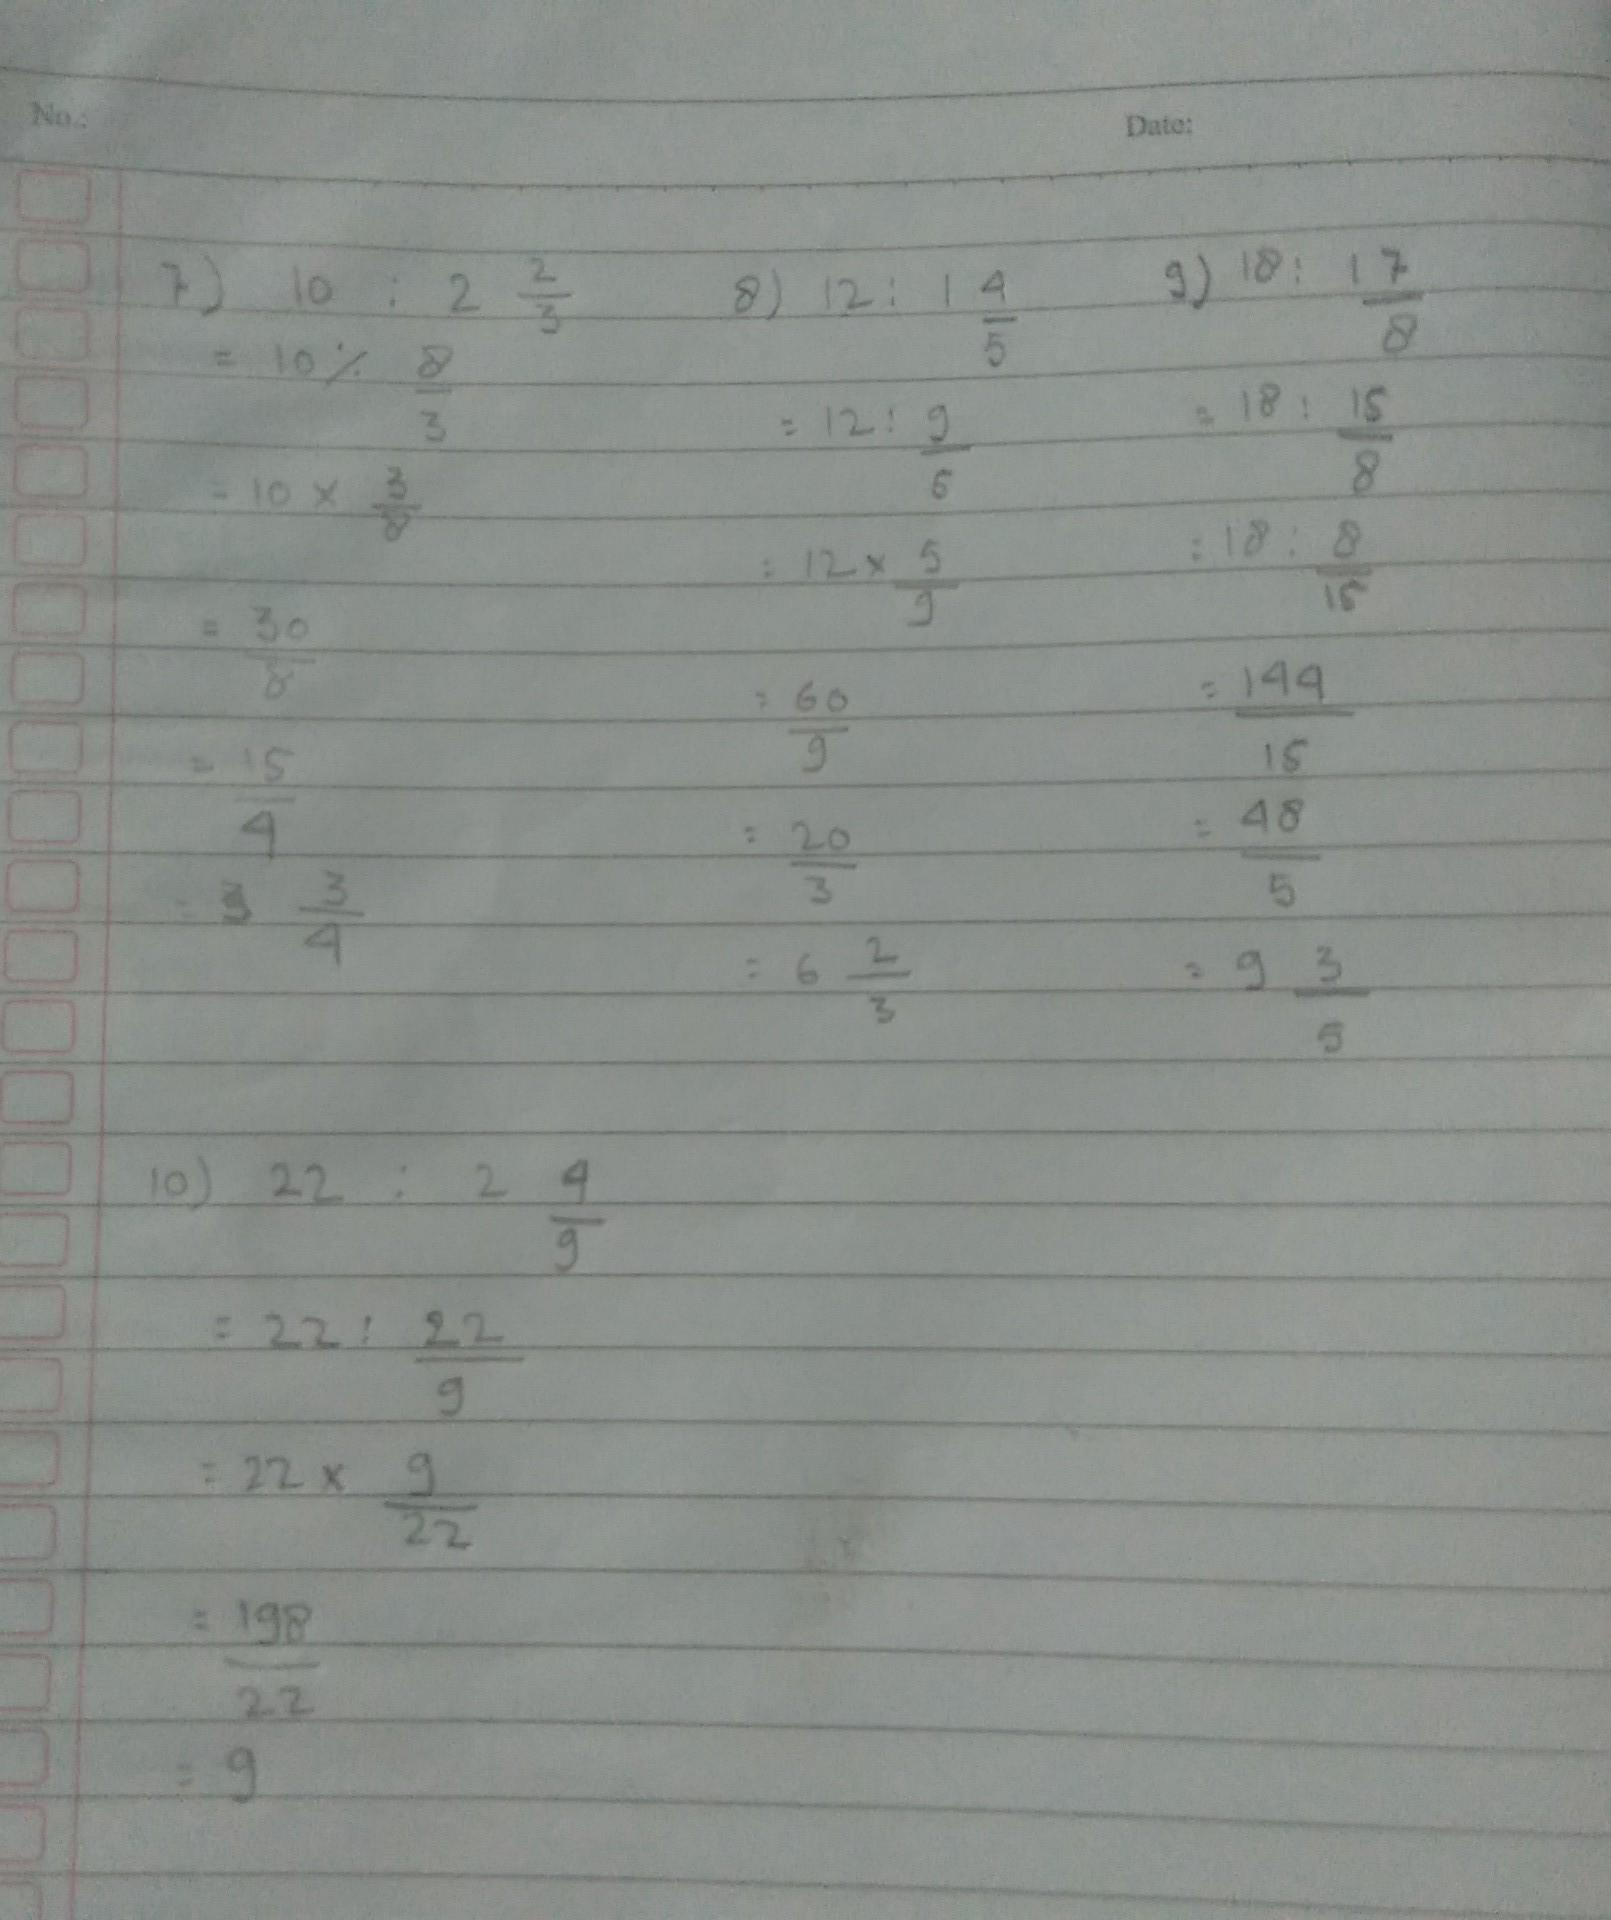 No.:
Date:
7) 10 : 2 2/3
= 10 ÷ 8/3
= 10 × 3/8
= 30/8
= 15/4
= 3 3/4
8) 12 : 1 4/5
= 12 : 9/5
= 12 × 5/9
= 60/9
= 20/3
= 6 2/3
9) 18 : 1 7/8
= 18 : 15/8
= 18 : 8/15
= 144/15
= 48/5
= 9 3/5
10) 22 : 2 4/9
= 22 : 22/9
= 22 × 9/22
= 198/22
= 9